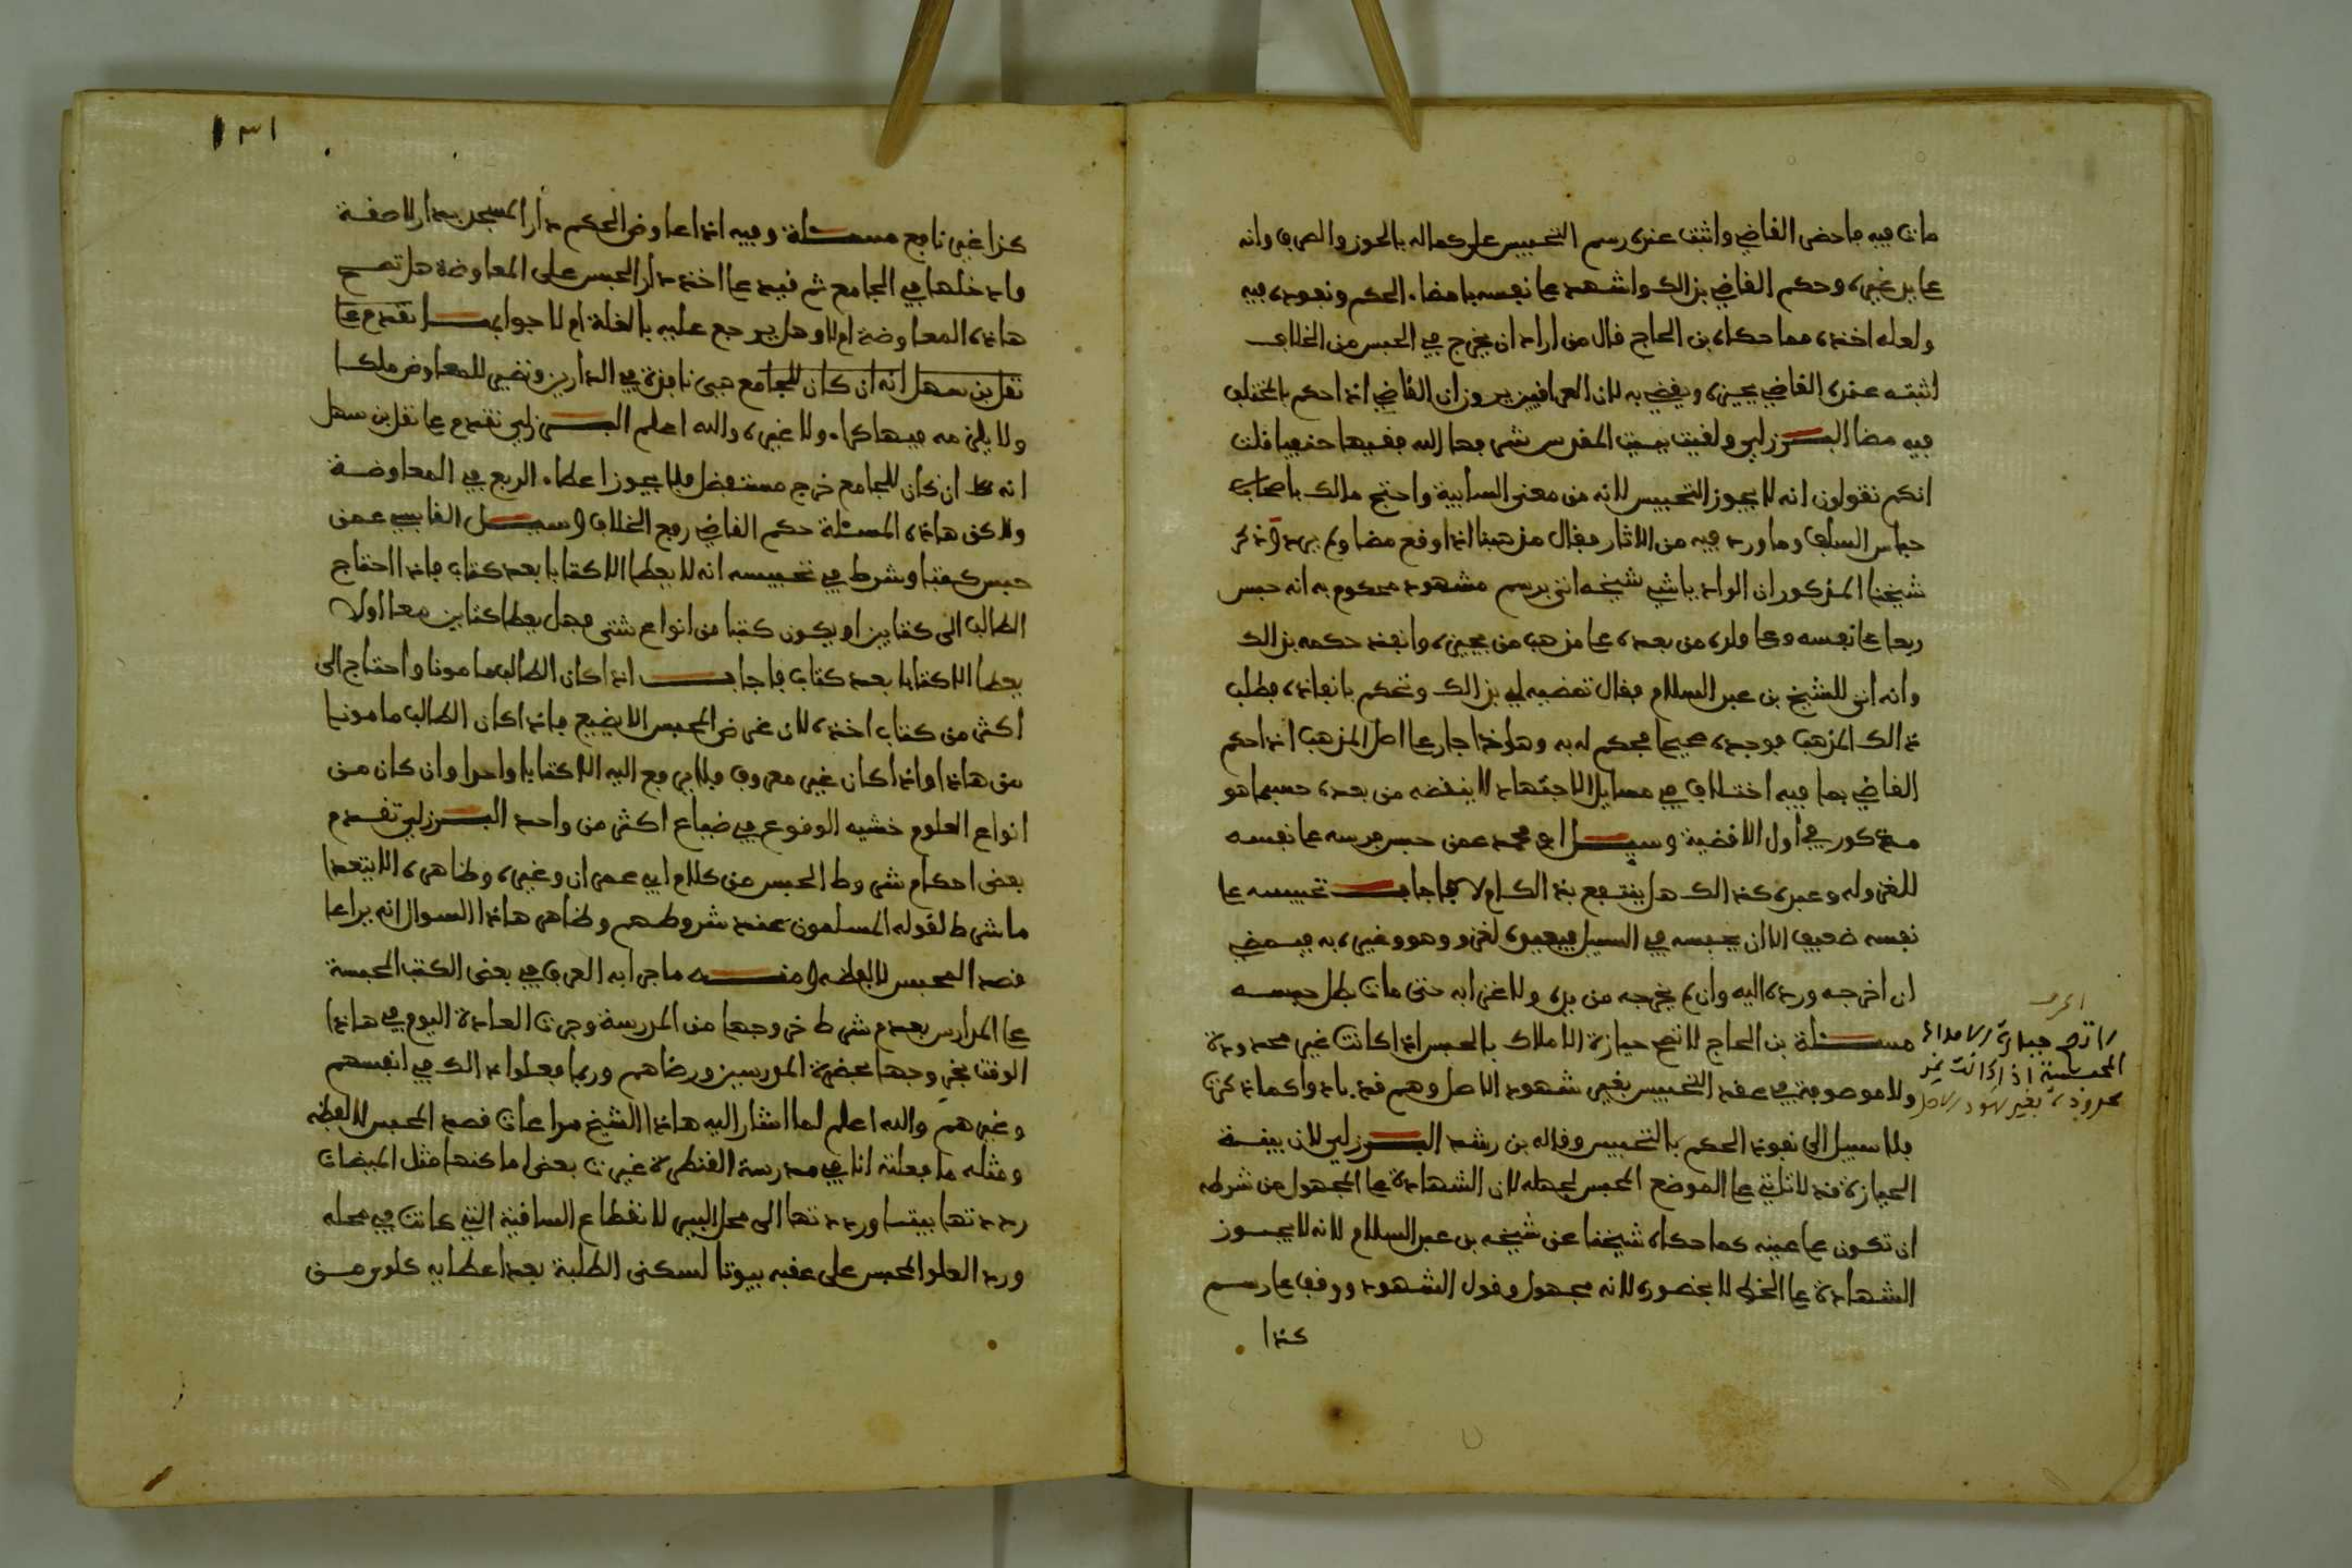 مات فيه فاحضر القاضي واثبت عنده رسم التحبيس على كماله بالحوز والصرف وانه
على يد غيره وحكم القاضي بذالك واشهد على نفسه بامضاء الحكم ونفوذه فيه
ولعله اخذه مما حكاه بن الحاج قال من اراد ان يخرج في الحبس من الخلاف
اثبته عند القاضي يجيزه ويقضي به لان العراقيين يرون ان القاضي اذا حكم بالمختلف
فيه مضا البرزلي ولقيت ببيت المقدس شرفها الله فقيها حنفيا قلت
انكم تقولون انه لا يجوز التحبيس لانه من معنى السايبة واحتج مالك باحباس
حباس السلف وما ورد فيه من الاثار فقال مذهبنا اذا وقع مضا ولم يرد وذكر
شيخنا المذكور ان الوادياشي شيخه اتى برسم مشهود محكوم به انه حبس
ربعا على نفسه وعلى ولده من بعده على مذهب من يجيزه وانفذ حكمه بذالك
وانه اتى للشيخ بن عبد السلام فقال تمضيه لي بذالك وتحكم بانفاذه فطلب
ذالك المذهب فوجده صحيحا فحكم له به وهاذا جار على اصل المذهب اذا حكم
القاضي بما فيه اختلاف في مسايل الاجتهاد لا ينقضه من بعده حسبما هو
مذكور في أول الاقضية وسيل ابو محمد عمن حبس فرسه على نفسه
للغزو له وعبده كذالك هل ينتفع بذالك ام لا فاجاب تحبيسه على
نفسه ضعيف الا ان يحبسه في السبيل فيعيره لغزو وهو وغيره به فيمضي
ان اخرجه ورده اليه وان لم يخرجه من يده ولا غزا به حتى مات بطل حبسه
مسئلة بن الحاج لا تصح حيازة الاملاك بالحبس اذا كانت غير محدودة
ولا موصوفة في عقد التحبيس بغير شهود الاصل وهم قد بادوا كما ذكرت
فلا سبيل الى نفوذ الحكم بالتحبيس وقاله بن رشد البرزلي لان بينة
الحيازة قد لا تاتي على الموضع المحبس لجهله لان الشهادة على المجهول من شرطه
ان تكون على عينه كما حكاه شيخنا عن شيخه بن عبد السلام لانه لا يجوز
الشهادة على الخط الا بحضوره لانه مجهول وقول الشهود ووقف على رسم
كذا
لا تصح حيازة الاملاك
المحبسة اذا كانت غير
محدودة بغير شهود الاصل
١٣١
كذا غير نافع مسئلة وفيه اذا عاوض الحكم دار المسجد بدار لاصقة
وادخلها في الجامع ثم قيم على اخذ دار الحبس على المعاوضة هل تصح
هاذه المعاوضة ام لا وهل يرجع عليه بالغلة ام لا جوابها تقدم على
نقل بن سهل انه ان كان للجامع فهي نافذة في الدارين وتصير للمعاوض ملكا
ولا يلزمه فيها كراء ولا غيره والله اعلم البرزلي تقدم على نقل بن سهل
انه ان كان للجامع خرج مستفضل فلا يجوز اعطاء الربع في المعاوضة
ولاكن هاذه المسئلة حكم القاضي رفع الخلاف وسيل القابسي عمن
حبس كتبا وشرط في تحبيسه انه لا يعطا الا كتابا بعد كتاب فاذا احتاج
الطالب الى كتابين او يكون كتبا من انواع شتى فهل يعطا كتابين معا اولا
يعطا الا كتابا بعد كتاب فاجاب اذا كان الطالب مامونا واحتاج الى
اكثر من كتاب اخذه لان غرض المحبس الا يضيع فاذا كان الطالب مامونا
من هاذا واذا كان غير معروف فلا يرفع اليه الا كتابا واحدا وان كان من
انواع العلوم خشيه الوقوع في ضياع اكثر من واحد البرزلي تقدم
بعض احكام شروط الحبس من كلام ابي عمران وغيره وظاهره الا يتعدا
ما شرط لقوله المسلمون عند شروطهم وظاهر هاذا السوال انه يراعا
قصد المحبس لا لفظه ومنه ما جرا به العرف في بعض الكتب المحبسة
على المدارس بعدم شرط خروجها من المدرسة وجرت العادة اليوم في هاذا
الوقت بخروجها بحضرة المدرسين ورضاهم وربما فعلوا ذالك في انفسهم
وغيرهم والله اعلم لما اشار اليه هاذا الشيخ مراعات قصد المحبس لا لفظه
ومثله ما فعلته انا في مدرسة القنطرة غيرت بعض اماكنها مثل الميضات
رددتها بيتا ورددتها الى محل البير لانقطاع الساقية التي كانت في محله
ورد العلو المحبس على عقبه بيوتا لسكنى الطلبة بعد اعطايه علو من